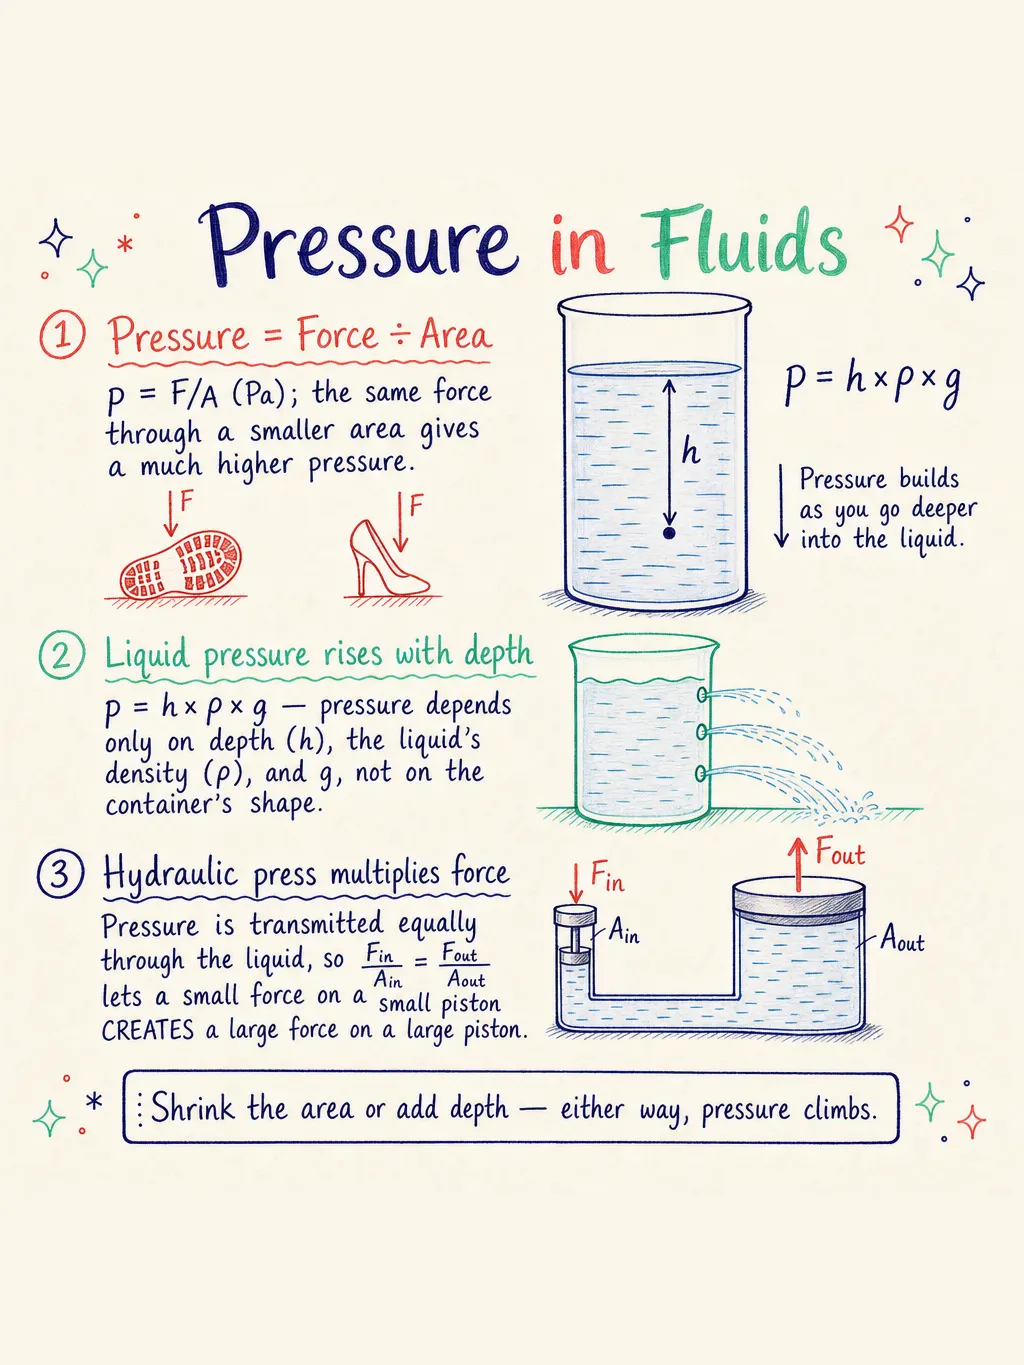 Pressure in Fluids
① Pressure = Force ÷ Area
p = F/A (Pa); the same force
through a smaller area gives
a much higher pressure.
F
F
h
p = h × ρ × g
Pressure builds
as you go deeper
into the liquid.
② Liquid pressure rises with depth
p = h × ρ × g — pressure depends
only on depth (h), the liquid's
density (ρ), and g, not on the
container's shape.
③ Hydraulic press multiplies force
Pressure is transmitted equally
through the liquid, so Fin/Ain = Fout/Aout
lets a small force on a small piston
CREATES a large force on a large piston.
Fin
Ain
Fout
Aout
Shrink the area or add depth — either way, pressure climbs.